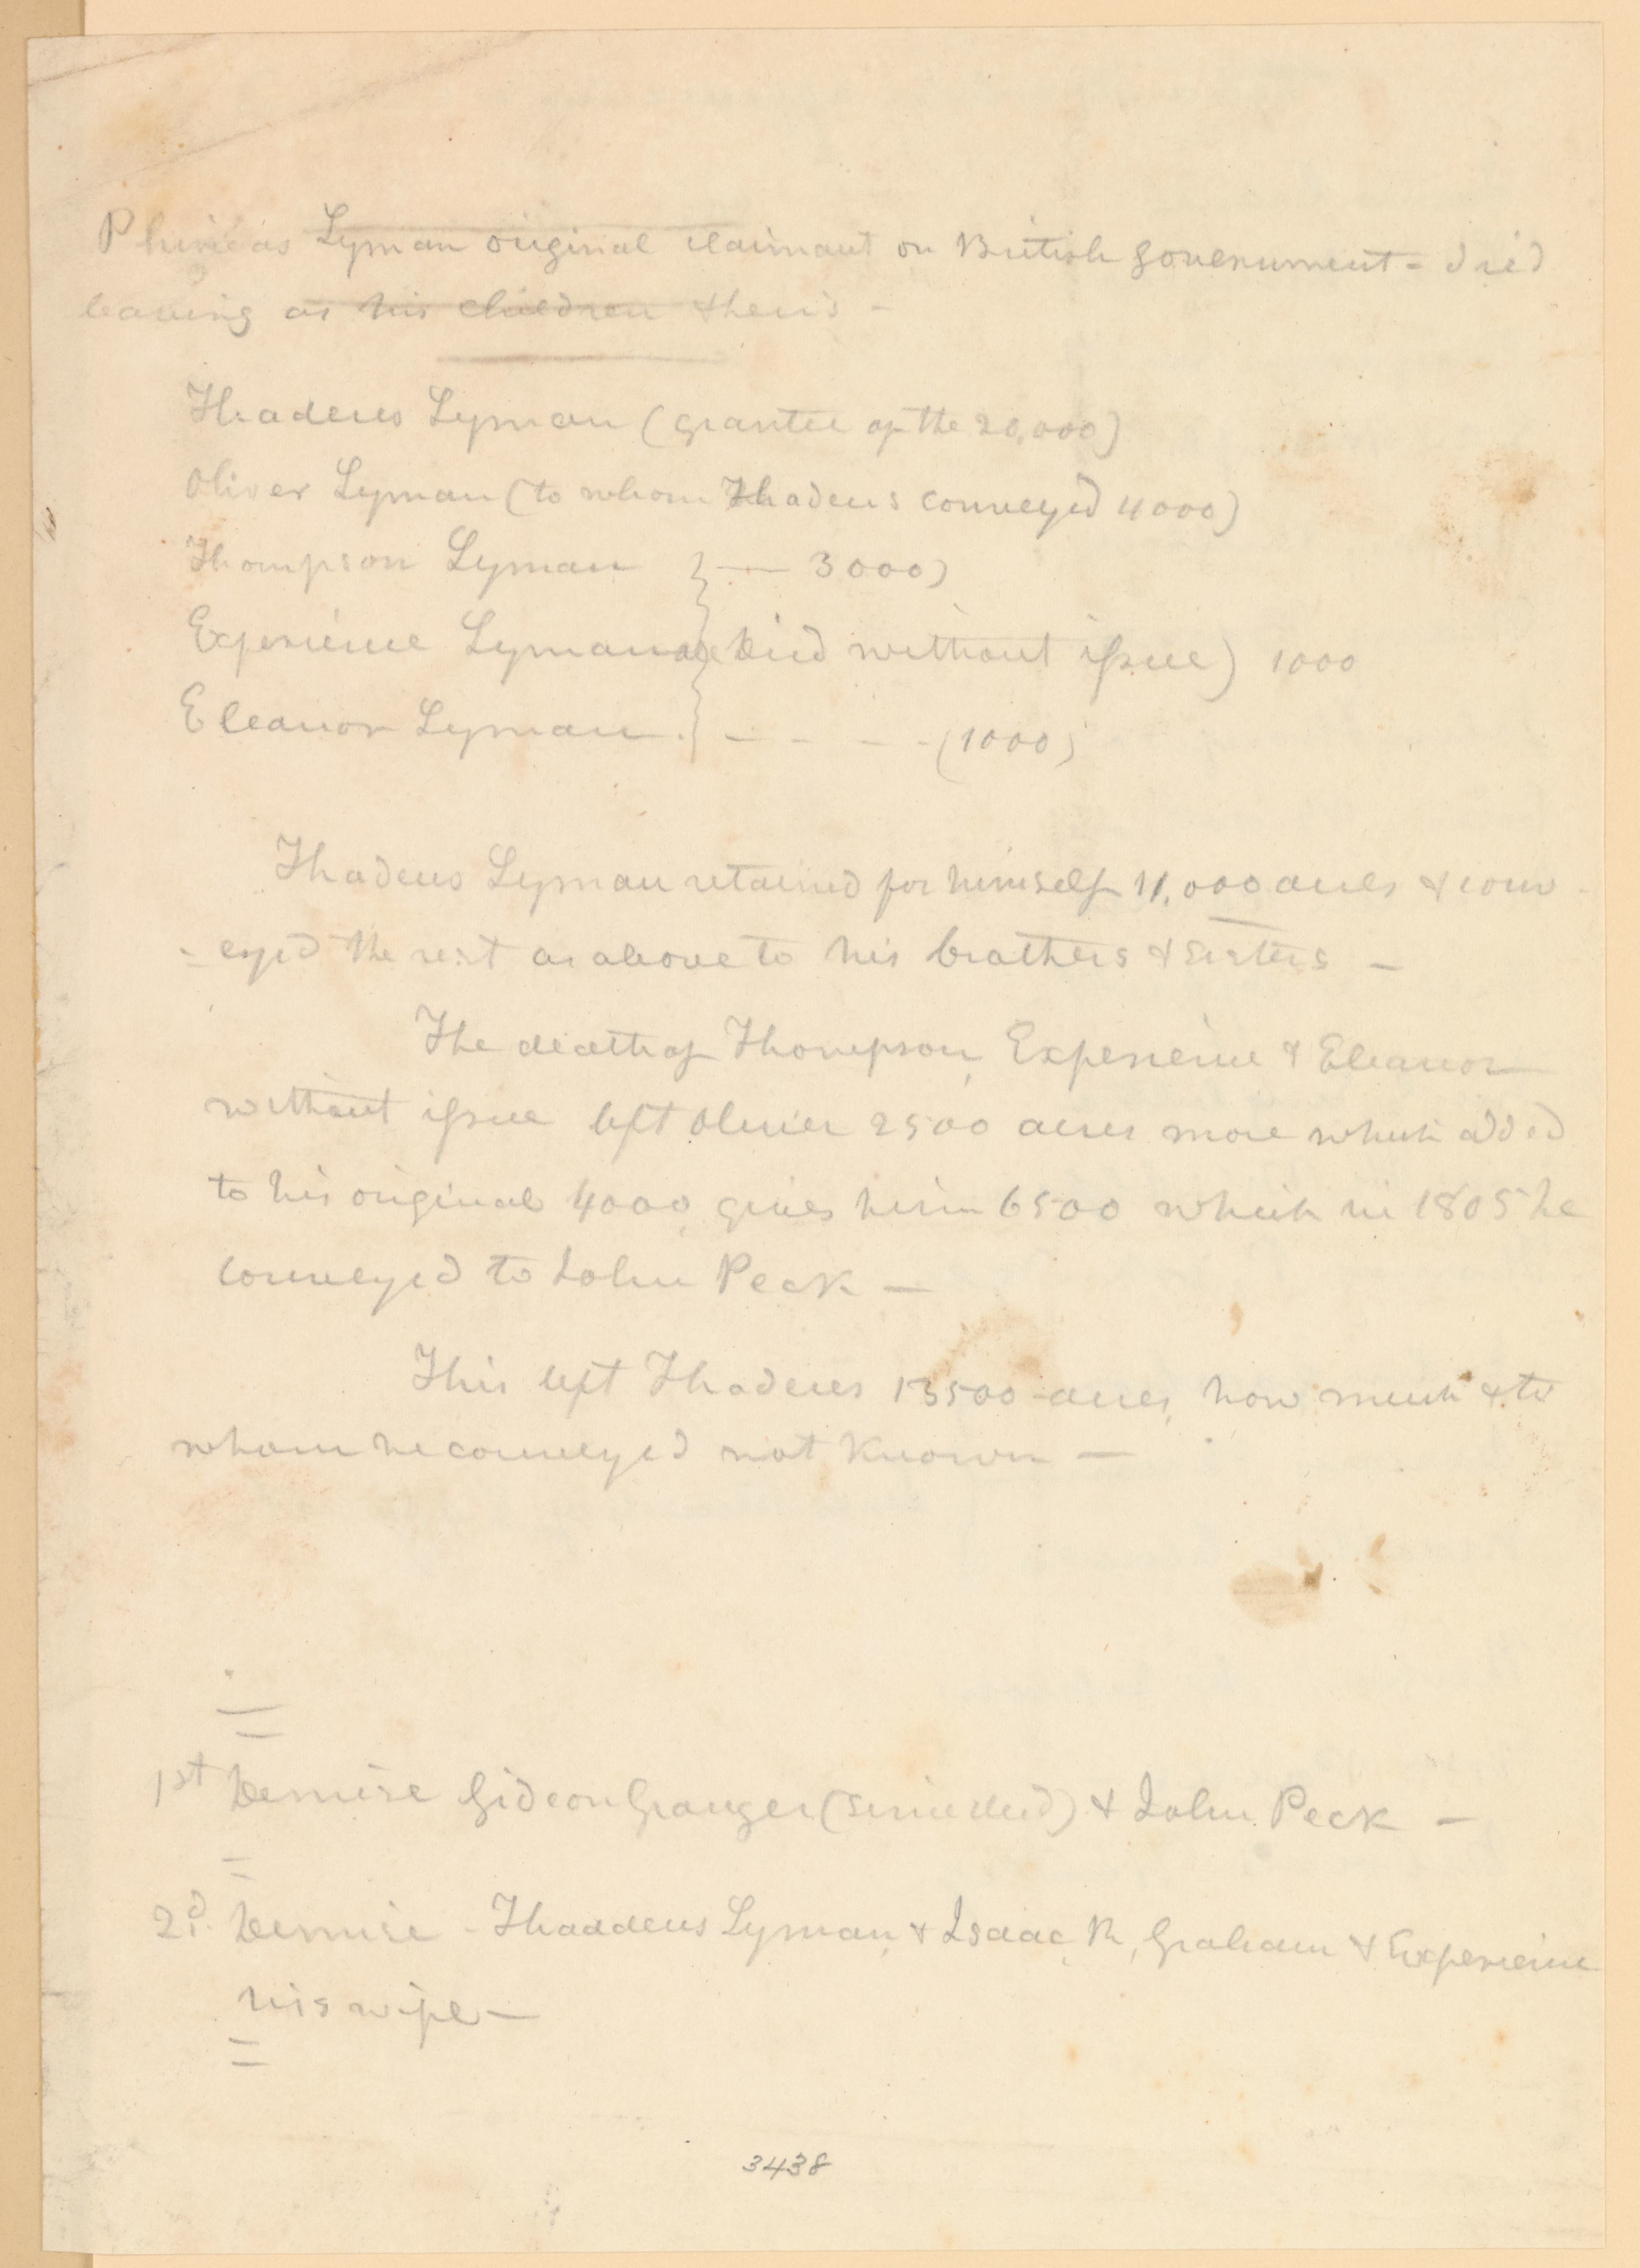 Phineas Lyman original claimant on British government - died
leaving as his children & heirs -
Thadeus Lyman (grantee of the 20,000)
Oliver Lyman (to whom Thadeus conveyed 4000)
Thompson Lyman } — 3000)
Experience Lyman died without issue) 1000
Eleanor Lyman . } - - - - (1000)
Thadeus Lyman retained for himself 11,000 acres & conv-
-eyed the rest as above to his brothers & sisters -
The death of Thompson, Experience & Eleanor
without issue left Oliver 2500 acres more which added
to his original 4000, gives him 6500 which in 1805 he
conveyed to John Peck —
This left Thadeus 13500 acres, how much & to
whom he conveyed not known —
1st Demise Gideon Granger (since died) & John Peck -
2d. Demise - Thaddeus Lyman, & Isaac R, Graham & Experience
his wife —
3438